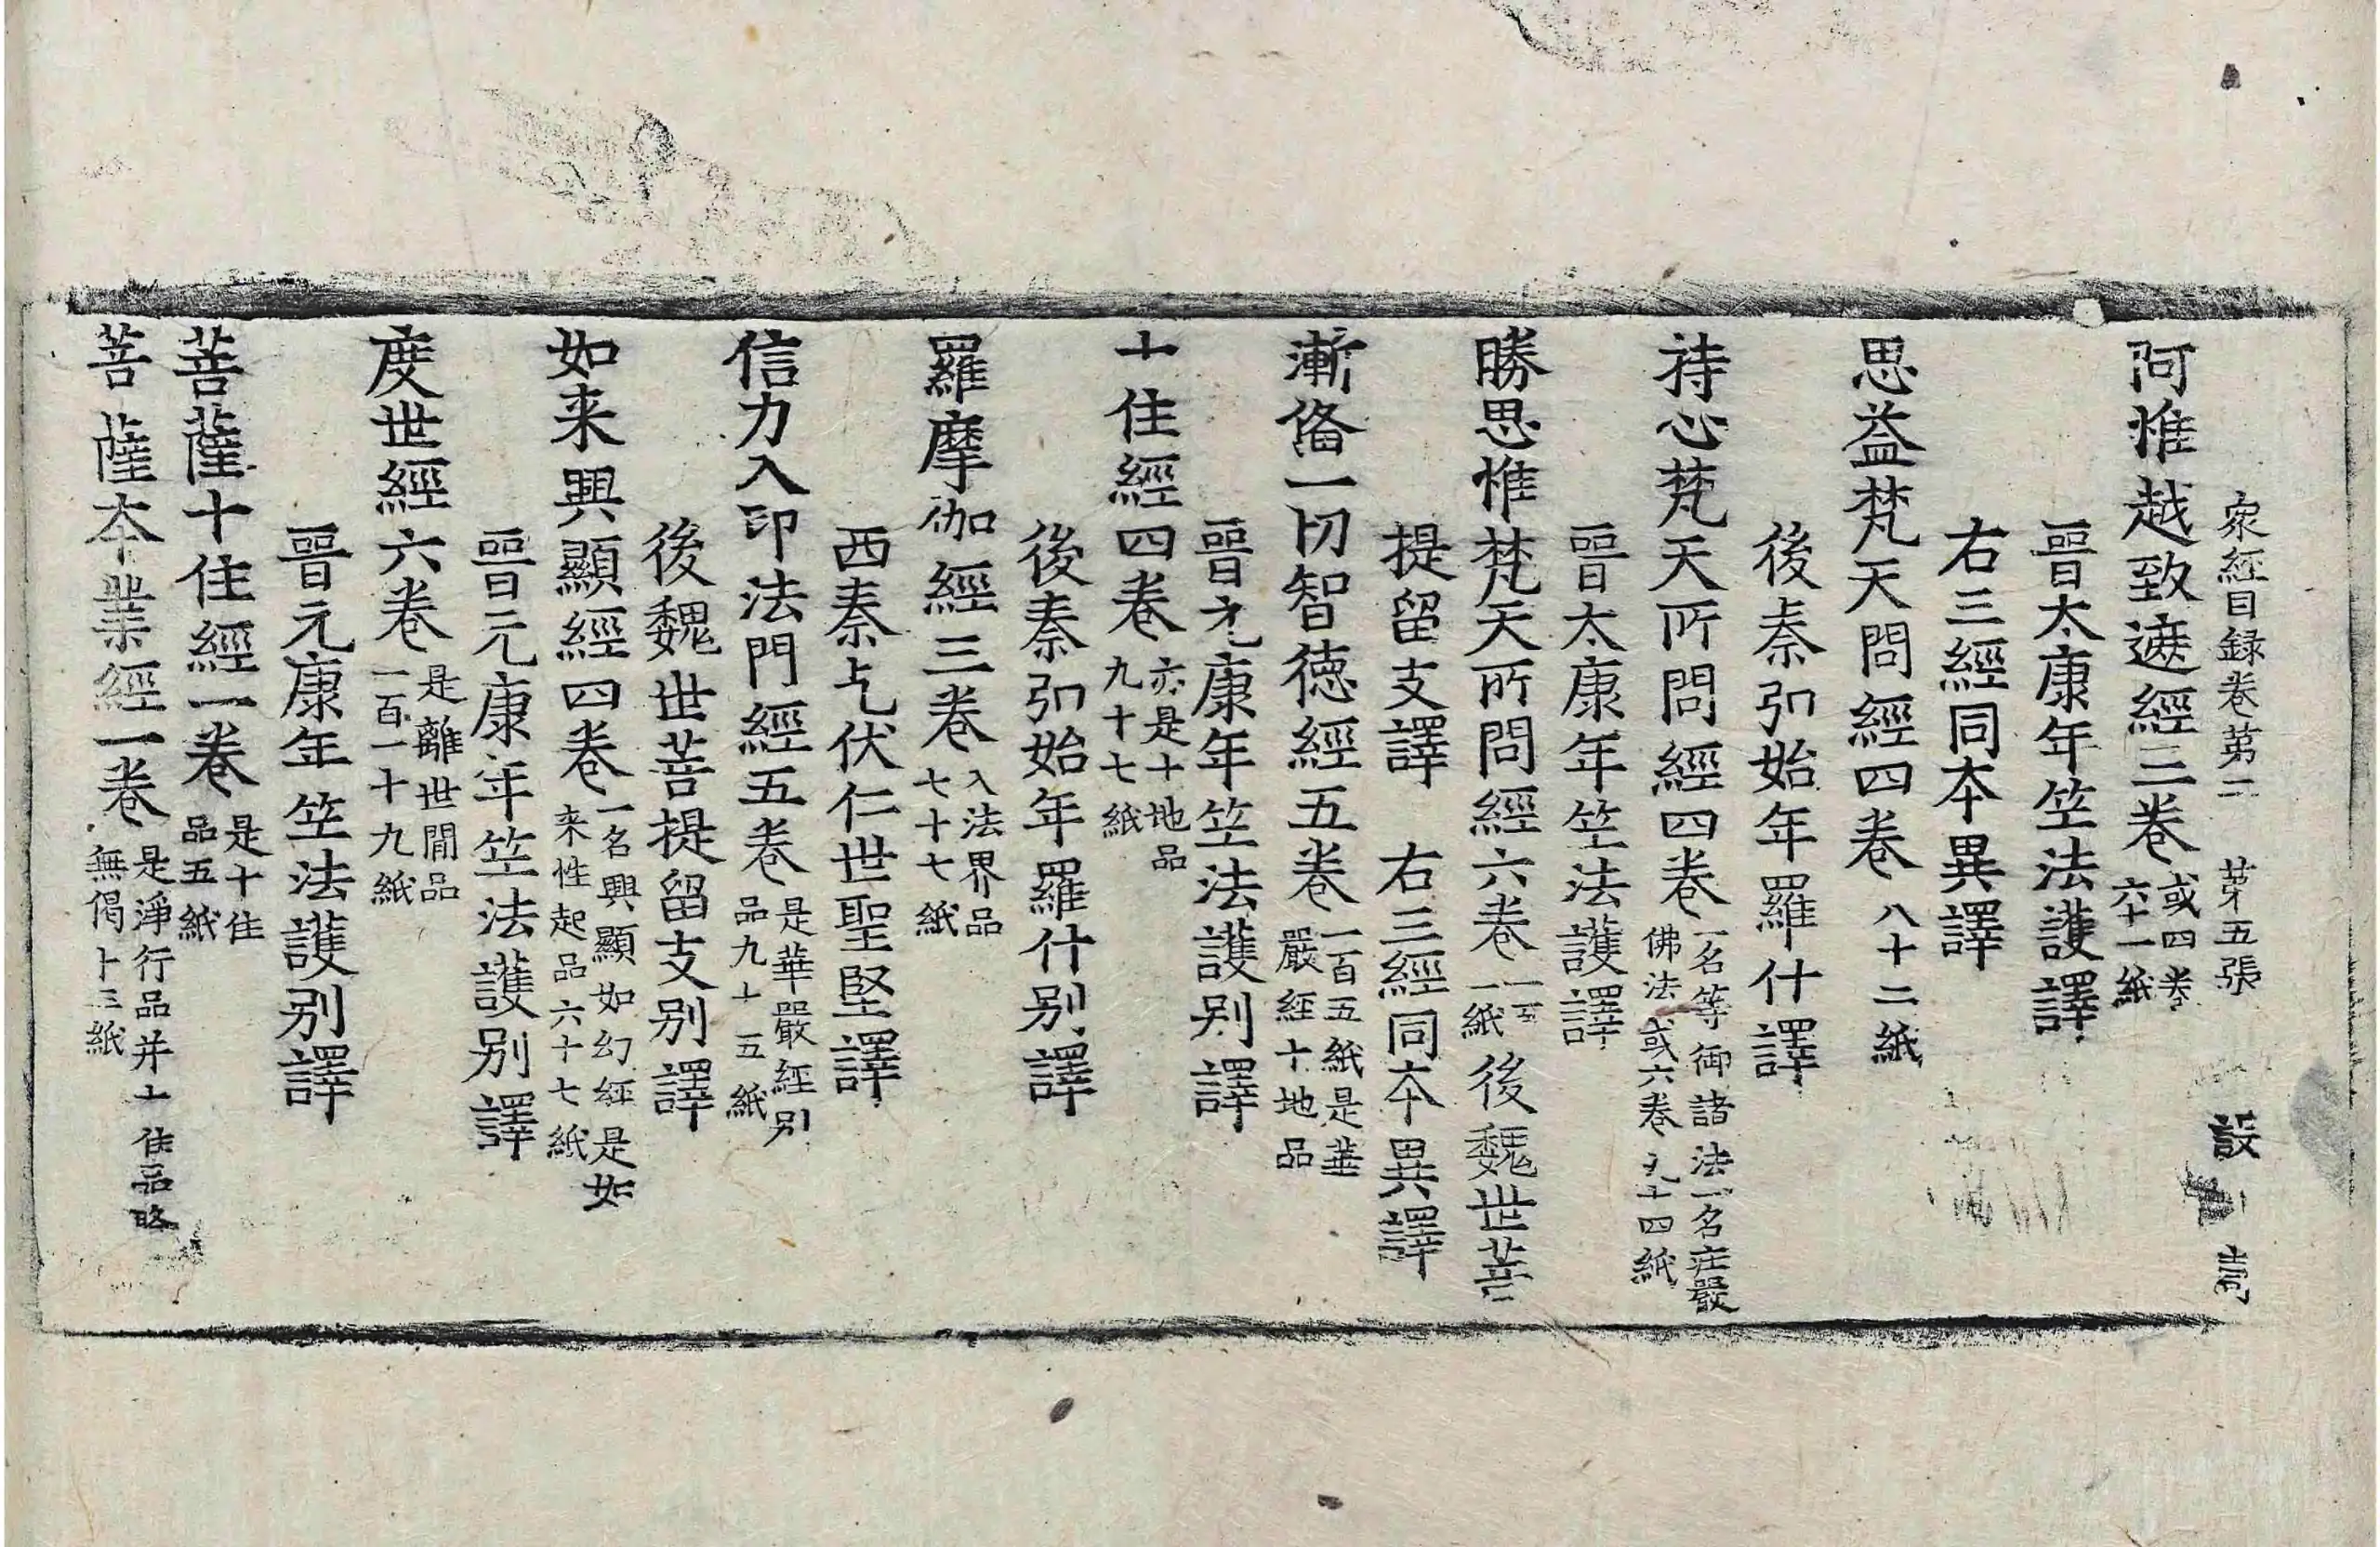 衆經目録卷第二 第五張 設
阿惟越致遮經三卷 或四卷 六十一紙
晉太康年竺法護譯
右三經同本異譯
思益梵天問經四卷 八十二紙
後秦弘始年羅什譯
持心梵天所問經四卷 一名等御諸法一名莊嚴 佛法或六卷九十四紙
晉太康年竺法護譯
勝思惟梵天所問經六卷 一百 一紙 後魏世菩
提留支譯 右三經同本異譯
漸偹一切智德經五卷 一百五紙是華 嚴經十地品
晉元康年竺法護別譯
十住經四卷 亦是十地品 九十七紙
後秦弘始年羅什別譯
羅摩伽經三卷 入法界品 七十七紙
西秦乞伏仁世聖堅譯
信力入印法門經五卷 是華嚴經別 品九十五紙
後魏世菩提留支別譯
如来興顯經四卷 一名興顯如幻經是如 来性起品六十七紙
晉元康年竺法護別譯
度世經六卷 是離世間品 一百一十九紙
晉元康年竺法護別譯
菩薩十住經一卷 是十住 品五紙
菩薩本業經一卷 是淨行品并十住品略 無偈十三紙